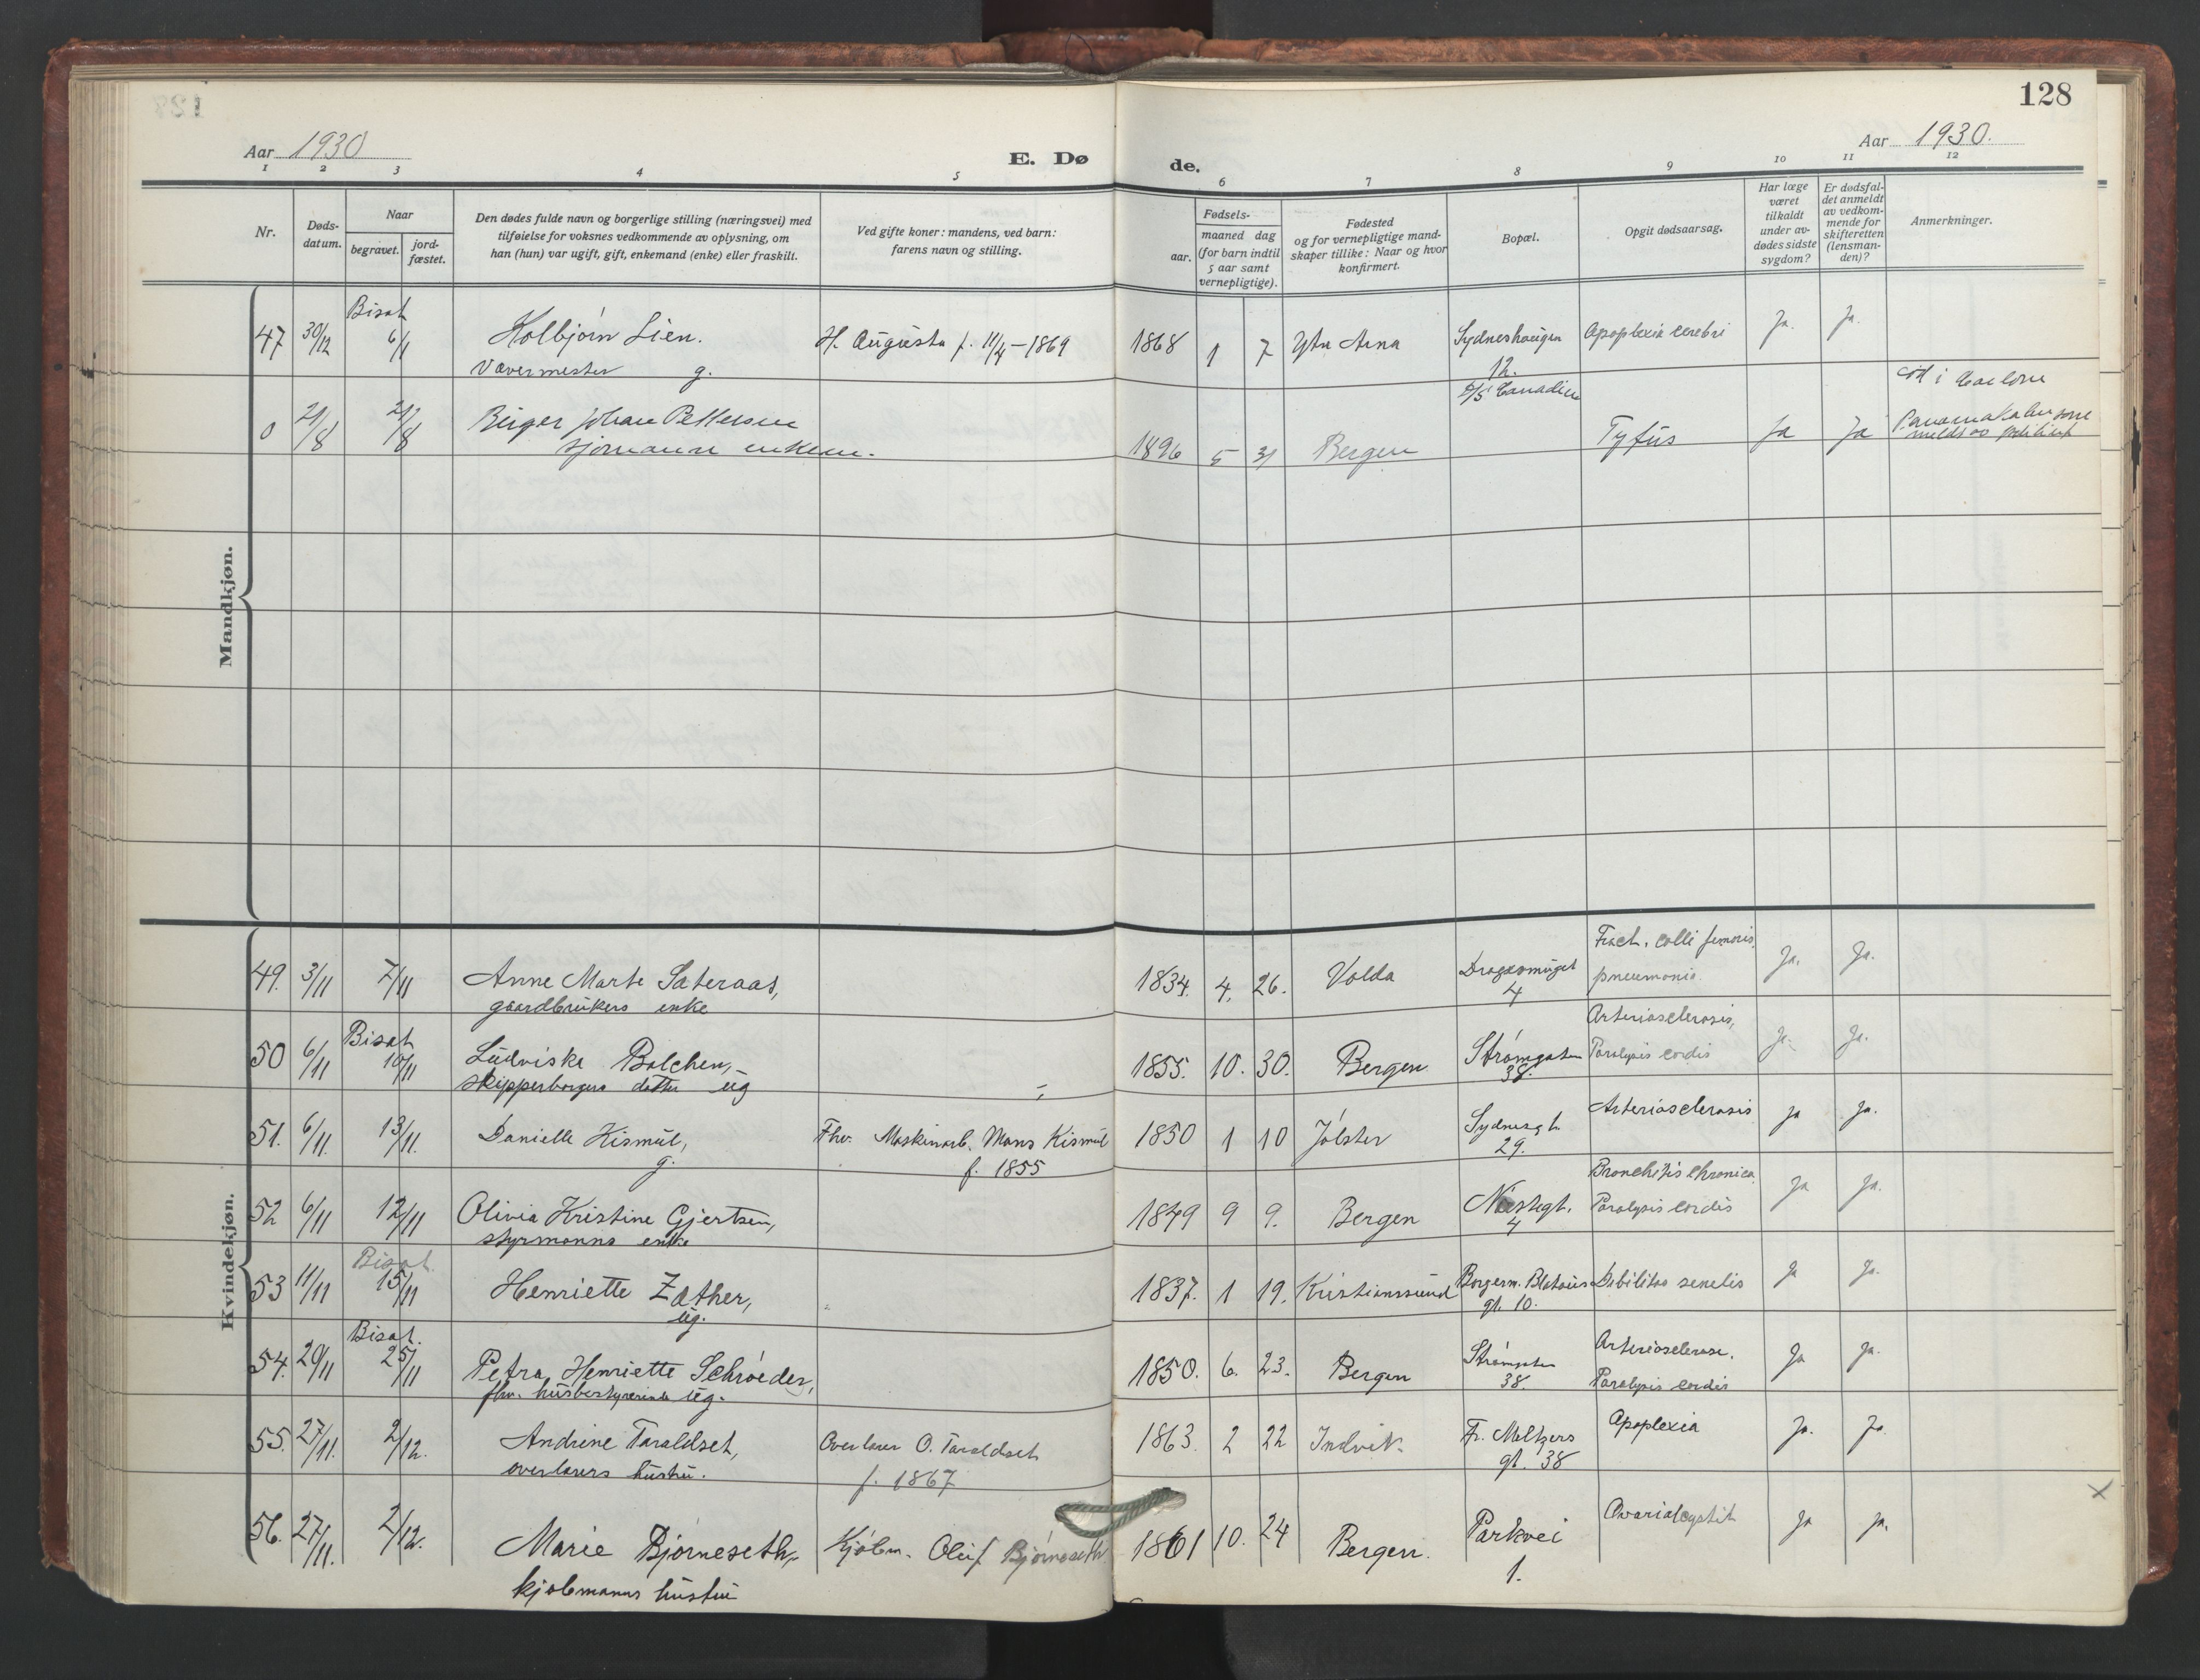 128
Aar 1930
E. Dø de.
Aar 1930.
1 2 3 4 5 6 7 8 9 10 11 12
Nr.
Døds-
datum.
Naar
begravet.
jord-
fæstet.
Den dødes fulde navn og borgerlige stilling (næringsvei) med
tilføielse for voksnes vedkommende av oplysning, om
han (hun) var ugift, gift, enkemand (enke) eller fraskilt.
Ved gifte koner: mandens, ved barn:
farens navn og stilling.
Fødsels-
aar.
maaned dag
(for barn indtil
5 aar samt
vernepligtige).
Fødested
og for vernepligtige mand-
skaper tillike: Naar og hvor
konfirmert.
Bopæl.
Opgit dødsaarsag.
Har læge
været
tilkaldt
under av-
dødes sidste
sygdom?
Er dødsfal-
det anmeldt
av vedkom-
mende for
skifteretten
(lensman-
den)?
Anmerkninger.
Mandkjøn.
Bisat
47 30/12 6/1 Kolbjørn Lien. H. Augusta f. 11/4-1869 1868 1 7 Ytre Arna Sydneshaugen Apoplexia cerebri Ja. Ja.
Vævermester g. 12.
D/S Canadien
0 21/8 21/8 Birger Johan Pettersen 1896 5 31 Bergen Tyfus Ja Ja
sjømann enkem.
Kvindekjøn.
49. 3/11 7/11 Anne Marte Sateraas, 1834. 4. 26. Volda Dragesmuget Fract. colli femoris, Ja. Ja.
gaardbrukers enke 4 pneumonia.
Bisat
50 6/11 10/11 Ludviske Bolchen, 1855. 10. 30. Bergen Strømgaten Arteriosclerosis, Ja. Ja.
skipperborgers datter ug 38. Paralysis cordis
51. 6/11. 13/11. Danielle Kismul, Fhv. Maskinarb. Mons Kismul 1850 1 10 Jølster Sydnesgt. Arteriosclerosis Ja Ja.
g. f. 1855 29.
52 6/11 12/11 Olivia Kristine Gjertsen, 1849 9 9. Bergen Nøstegt. Bronchitis chronica, Ja Ja.
styrmanns enke 4 Paralysis cordis
Bisat.
53 11/11 15/11 Henriette Zather, 1837. 1 19. Kristianssund Borgerm. Platous Debilitas senelis Ja Ja.
ug. gt. 10.
Bisat.
54. 20/11 25/11 Petra Henriette Schrøder, 1850. 6. 23. Bergen Strømgaten Arteriosclerose. Ja Ja.
fhv. husbestyrerinde ug. 38. Paralysis cordis
55. 27/11. 2/12. Andrine Taraldset, Overlærer O. Taraldset 1863 2 22 Indvik. Fr. Meltzers Apoplexia Ja. Ja.
overlærers hustru. f. 1867 gt. 38
56. 27/11. 2/12. Marie Bjørneseth, Kjøbm. Oluf Bjørneseth 1861 10. 24 Bergen. Parkvei Ovarialcystit Ja Ja.
kjøbmanns hustru 1.
X